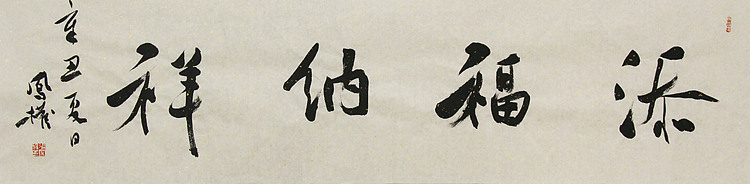 添福纳祥
辛丑夏日
凤权